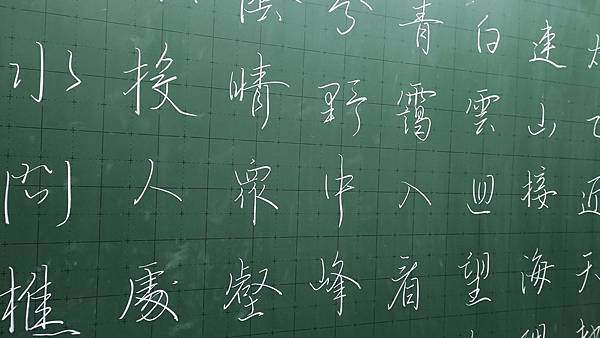 乙近天
連山接海
白雲迴望
青靄入看
野中峰
晴眾壑
投人處
水問樵